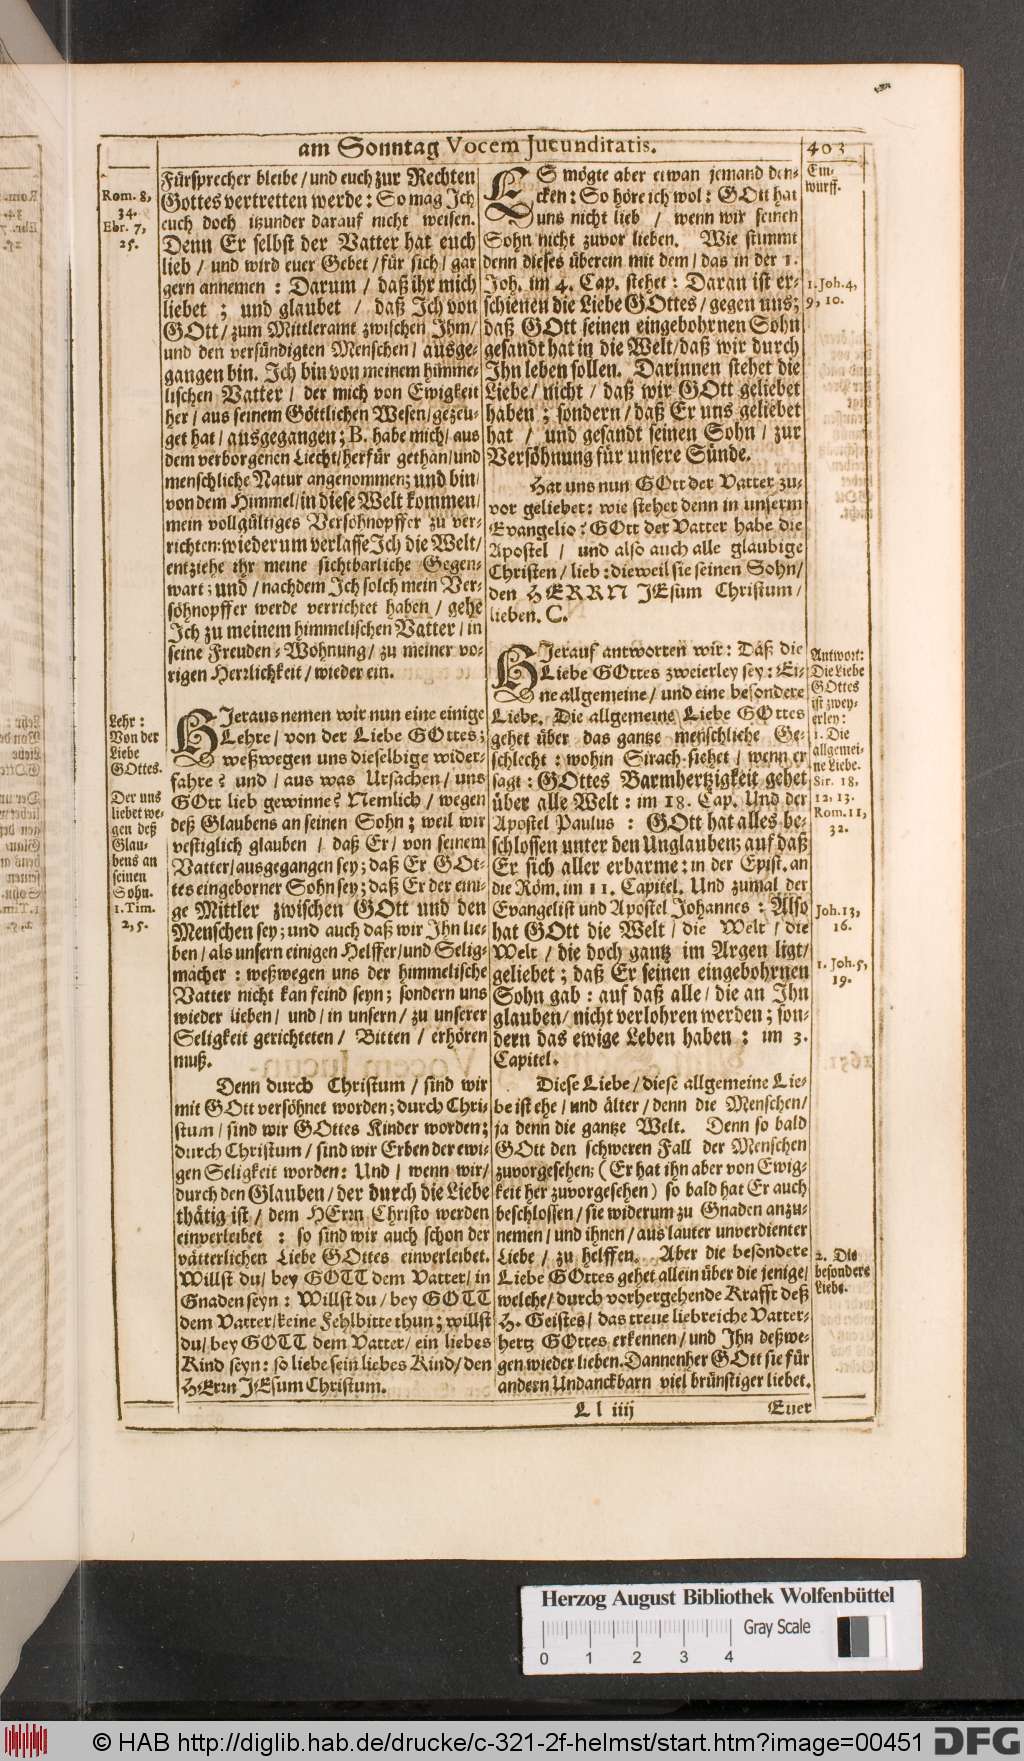 am Sonntag Vocem Jucunditatis.
403
Rom. 8,
34.
Ebr. 7,
25.
Fürsprecher bleibe / und euch zur Rechten
Gottes vertretten werde: So mag Ich
euch doch itzunder darauf nicht weisen.
Denn Er selbst der Vatter hat euch
lieb / und wird euer Gebet / für sich / gar
gern annemen : Darum / daß ihr mich
liebet ; und glaubet / daß Ich von
GOtt / zum Mittleramt zwischen Ihm /
und den versündigten Menschen / ausge-
gangen bin. Ich bin von meinem himme-
lischen Vatter / der mich von Ewigkeit
her / aus seinem Göttlichen Wesen / gezeu-
get hat / ausgegangen ; B. habe mich / aus
dem verborgenen Liecht / herfür gethan / und
menschliche Natur angenommen; und bin /
von dem Himmel / in diese Welt kommen /
mein vollgültiges Versöhnopffer zu ver-
richten: wiederum verlasse Ich die Welt /
entziehe ihr meine sichtbarliche Gegen-
wart ; und / nachdem Ich solch mein Ver-
söhnopffer werde verrichtet haben / gehe
Ich zu meinem himmelischen Vatter / in
seine Freuden-Wohnung / zu meiner vo-
rigen Herrlichkeit / wieder ein.
Lehr :
Von der
Liebe
GOttes.
Der uns
liebet we-
gen deß
Glau-
bens an
seinen
Sohn.
1. Tim.
2, 5.
HIeraus nemen wir nun eine einige
Lehre / von der Liebe GOttes ;
weßwegen uns dieselbige wider-
fahre ? und / aus was Ursachen / uns
GOtt lieb gewinne ? Nemlich / wegen
deß Glaubens an seinen Sohn ; weil wir
vestiglich glauben / daß Er / von seinem
Vatter / ausgegangen sey ; daß Er GOt-
tes eingeborner Sohn sey ; daß Er der eini-
ge Mittler zwischen GOtt und den
Menschen sey ; und auch daß wir Ihn lie-
ben / als unsern einigen Helffer / und Selig-
macher : weßwegen uns der himmelische
Vatter nicht kan feind seyn ; sondern uns
wieder lieben / und / in unsern / zu unserer
Seligkeit gerichteten / Bitten / erhören
muß.
Denn durch Christum / sind wir
mit GOtt versöhnet worden ; durch Chri-
stum / sind wir GOttes Kinder worden ;
durch Christum / sind wir Erben der ewi-
gen Seligkeit worden : Und / wenn wir /
durch den Glauben / der durch die Liebe
thätig ist / dem HErrn Christo werden
einverleibet : so sind wir auch schon der
vätterlichen Liebe GOttes einverleibet.
Willst du / bey GOTT dem Vatter / in
Gnaden seyn : Willst du / bey GOTT
dem Vatter / keine Fehlbitte thun ; willst
du / bey GOTT dem Vatter / ein liebes
Kind seyn : so liebe sein liebes Kind / den
HErrn JEsum Christum.
Ein-
wurff.
ES mögte aber etwan jemand den-
cken : So höre ich wol : GOtt hat
uns nicht lieb / wenn wir seinen
Sohn nicht zuvor lieben. Wie stimmt
denn dieses überein mit dem / das in der 1.
Joh. im 4. Cap. stehet : Daran ist er-
schienen die Liebe GOttes / gegen uns ;
daß GOtt seinen eingebohrnen Sohn
gesandt hat in die Welt / daß wir durch
Ihn leben sollen. Darinnen stehet die
Liebe / nicht / daß wir GOtt geliebet
haben ; sondern / daß Er uns geliebet
hat / und gesandt seinen Sohn / zur
Versöhnung für unsere Sünde.
1. Joh. 4,
9, 10.
Hat uns nun GOtt der Vatter zu-
vor geliebet : wie stehet denn in unserm
Evangelio : GOtt der Vatter habe die
Apostel / und also auch alle glaubige
Christen / lieb : dieweil sie seinen Sohn /
den HERRN JEsum Christum /
lieben. C.
HIerauf antworten wir : Daß die
Liebe GOttes zweierley sey : Ei-
ne allgemeine / und eine besondere
Liebe. Die allgemeine Liebe GOttes
gehet über das gantze menschliche Ge-
schlecht : wohin Sirach siehet / wenn er
sagt : GOttes Barmhertzigkeit gehet
über alle Welt : im 18. Cap. Und der
Apostel Paulus : GOtt hat alles be-
schlossen unter den Unglauben; auf daß
Er sich aller erbarme : in der Epist. an
die Röm. im 11. Capitel. Und zumal der
Evangelist und Apostel Johannes : Also
hat GOtt die Welt / die Welt / die
Welt / die doch gantz im Argen ligt /
geliebet ; daß Er seinen eingebohrnen
Sohn gab : auf daß alle / die an Ihn
glauben / nicht verlohren werden ; son-
dern das ewige Leben haben : im 3.
Capitel.
Antwort:
Die Liebe
GOttes
ist zwey-
erley :
1. Die
allgemei-
ne Liebe.
Sir. 18,
12, 13.
Rom. 11,
32.
Joh. 13,
16.
1. Joh. 5,
19.
Diese Liebe / diese allgemeine Lie-
be ist ehe / und älter / denn die Menschen /
ja denn die gantze Welt. Denn so bald
GOtt den schweren Fall der Menschen
zuvorgesehen; ( Er hat ihn aber von Ewig-
keit her zuvorgesehen ) so bald hat Er auch
beschlossen / sie widerum zu Gnaden anzu-
nemen / und ihnen / aus lauter unverdienter
Liebe / zu helffen. Aber die besondere
Liebe GOttes gehet allein über die jenige /
welche / durch vorhergehende Krafft deß
H. Geistes / das treue liebreiche Vatter-
hertz GOttes erkennen / und Ihn deßwe-
gen wieder lieben. Dannenher GOtt sie für
andern Undanckbarn viel brünstiger liebet.
2. Die
besondere
Liebe.
Ll iiij
Euer
Herzog August Bibliothek Wolfenbüttel
Gray Scale
0 1 2 3 4
© HAB http://diglib.hab.de/drucke/c-321-2f-helmst/start.htm?image=00451
DFG